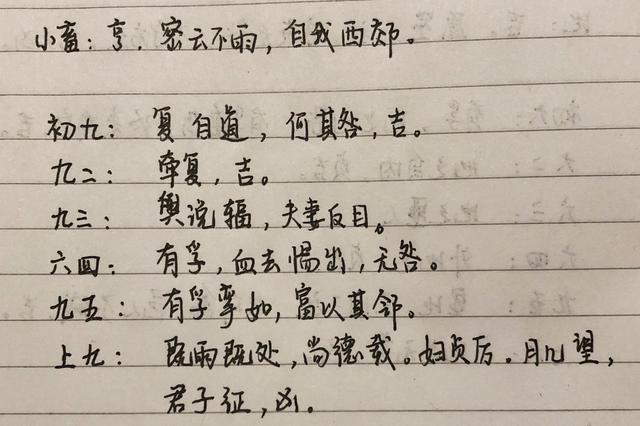 小畜：亨，密云不雨，自我西郊。
初九：复自道，何其咎，吉。
九二：牵复，吉。
九三：舆说辐，夫妻反目。
六四：有孚，血去惕出，无咎。
九五：有孚挛如，富以其邻。
上九：既雨既处，尚德载。妇贞厉。月几望，
君子征，凶。